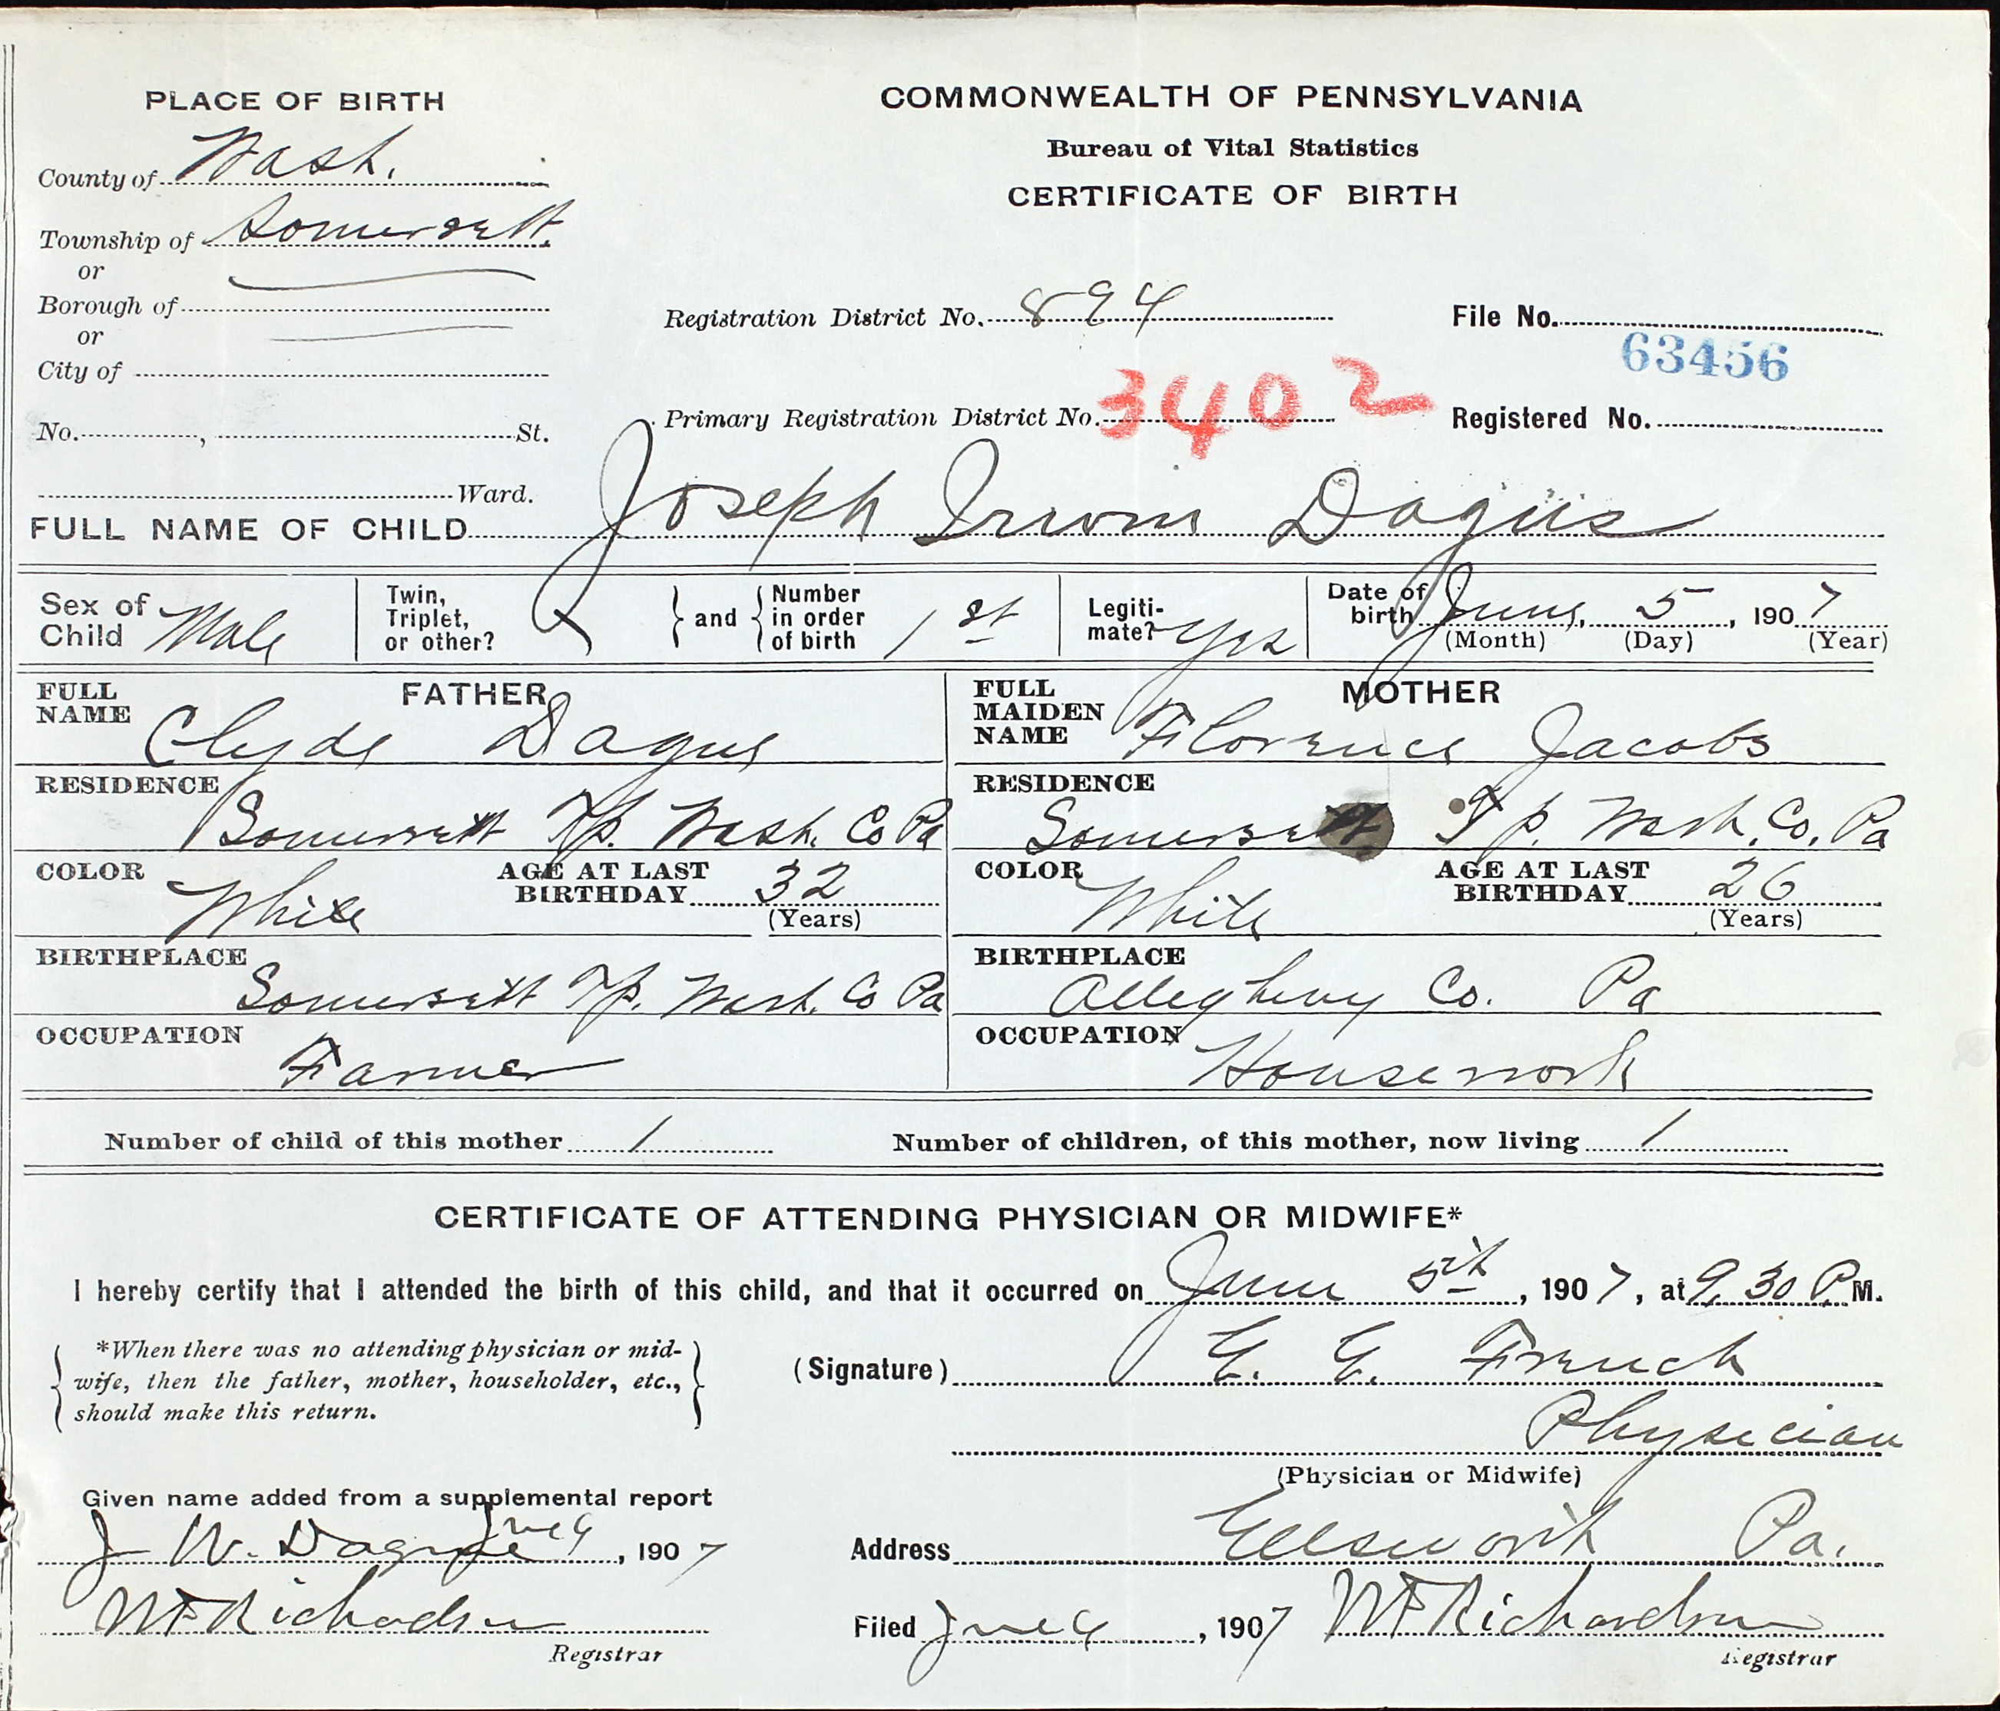 PLACE OF BIRTH
County of Wash.
Township of Somersett.
or
Borough of
or
City of
No. , St.
Ward.
COMMONWEALTH OF PENNSYLVANIA
Bureau of Vital Statistics
CERTIFICATE OF BIRTH
Registration District No. 894
File No.
63456
Primary Registration District No. 3402
Registered No.
FULL NAME OF CHILD Joseph Irwin Dague
Sex of Child Male
Twin, Triplet, or other?
and
Number in order of birth 1st
Legitimate? Yes
Date of birth June, 5, 1907
(Month) (Day) (Year)
FATHER
FULL NAME Clyde Dague
RESIDENCE
Somersett Tp. Wash. Co Pa
COLOR White
AGE AT LAST BIRTHDAY 32
(Years)
BIRTHPLACE
Somersett Tp. Wash. Co Pa
OCCUPATION
Farmer
MOTHER
FULL MAIDEN NAME Florence Jacobs
RESIDENCE
Somersett Tp. Wash. Co. Pa
COLOR White
AGE AT LAST BIRTHDAY 26
(Years)
BIRTHPLACE
Allegheny Co. Pa
OCCUPATION
Housework
Number of child of this mother 1
Number of children, of this mother, now living 1
CERTIFICATE OF ATTENDING PHYSICIAN OR MIDWIFE*
I hereby certify that I attended the birth of this child, and that it occurred on June 5th, 1907, at 9.30 P.M.
*When there was no attending physician or mid-
wife, then the father, mother, householder, etc.,
should make this return.
(Signature) E. E. French
Physician
(Physician or Midwife)
Given name added from a supplemental report
J W. Dague , 1907
W F Richardson
Registrar
Address Ellsworth Pa.
Filed , 1907 W F Richardson
Registrar